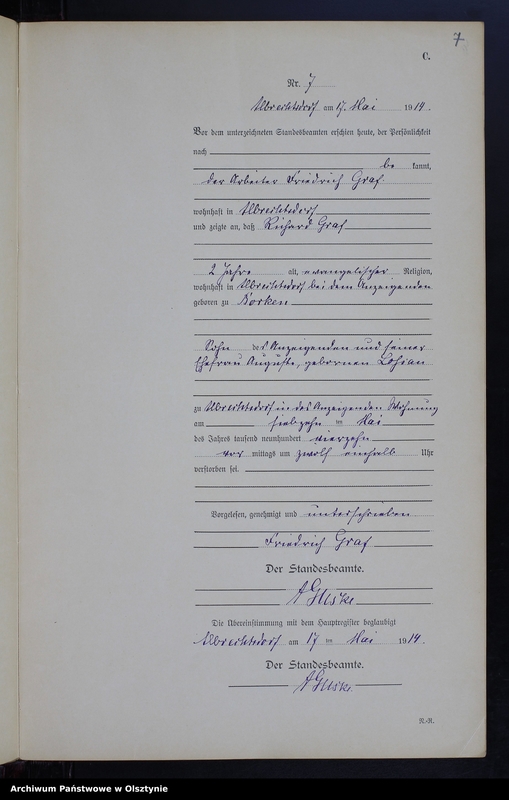 7
C.
Nr. 7
Albrechtsdorf am 17. Mai 1914.
Vor dem unterzeichneten Standesbeamten erschien heute, der Persönlichkeit
nach
be kannt,
der Arbeiter Friedrich Graf
wohnhaft in Albrechtsdorf
und zeigte an, daß Richard Graf
2 Jahre alt, evangelischer Religion,
wohnhaft in Albrechtsdorf bei dem Anzeigenden
geboren zu Borken
Sohn des Anzeigenden und seiner
Ehefrau Auguste, geborenen
zu Albrechtsdorf in des Anzeigenden Wohnung
am siebzehn ten Mai
des Jahres tausend neunhundert vierzehn
vor mittags um zwölf einhalb Uhr
verstorben sei.
Vorgelesen, genehmigt und unterschrieben
Friedrich Graf
Der Standesbeamte.
Die Übereinstimmung mit dem Hauptregister beglaubigt
Albrechtsdorf am 17 ten Mai 1914.
Der Standesbeamte.
R.-R.
Archiwum Państwowe w Olsztynie